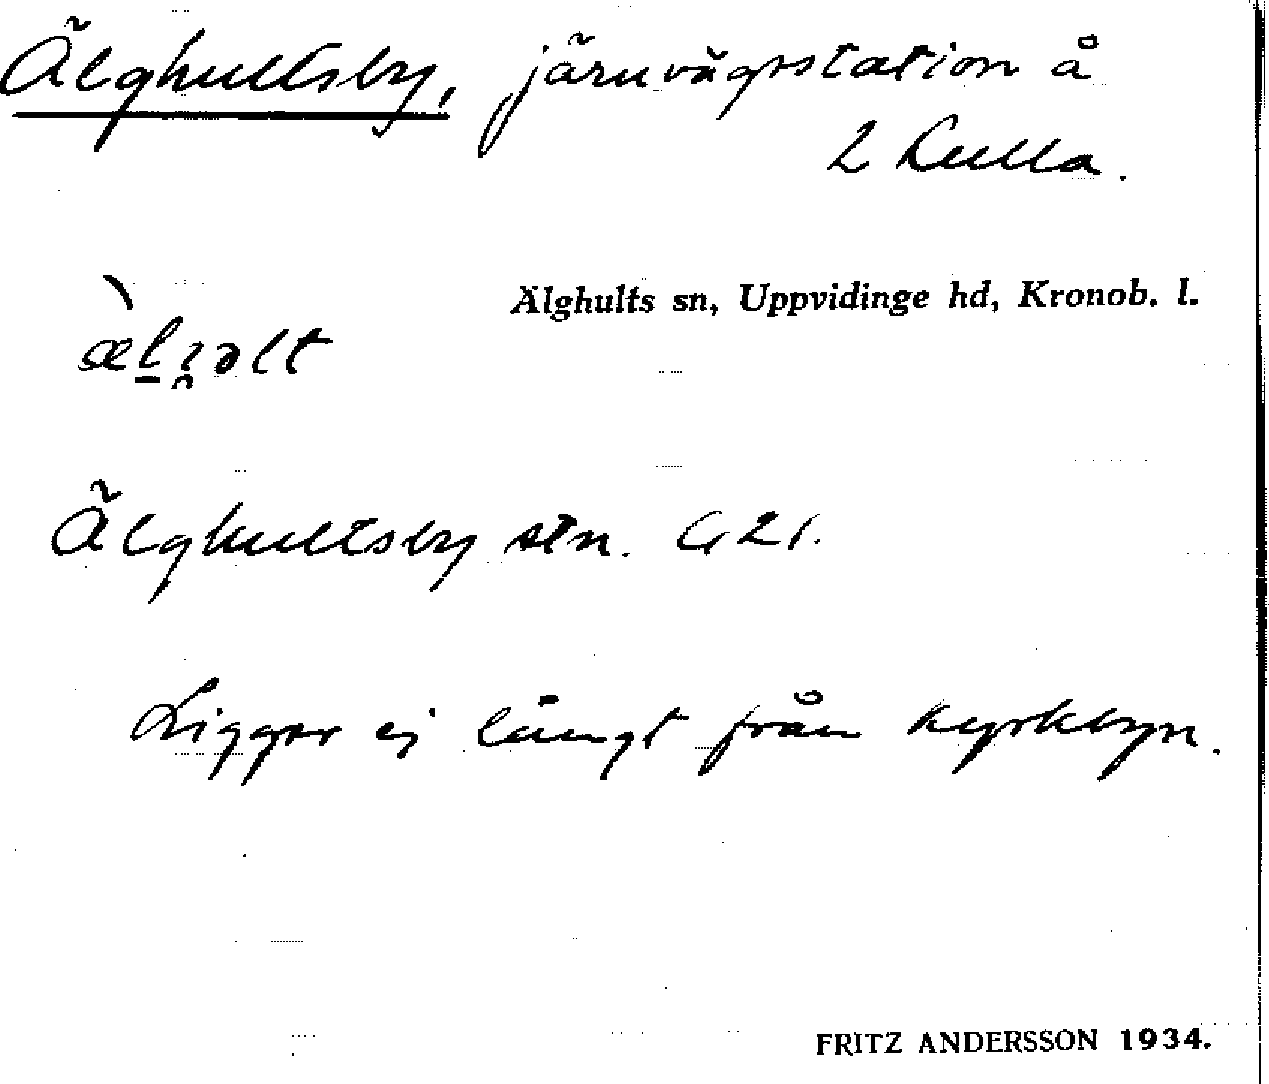 Älghultsby, järnvägsstation å
2 Kulla.
Älghults sn, Uppvidinge hd, Kronob. l.
Älghultsby stn. G 21.
Ligger ej långt från kyrkbyn.
FRITZ ANDERSSON 1934.